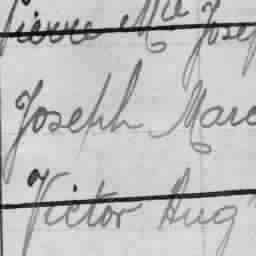 Pierre Mie Josep
Joseph Marc
Victor Aug